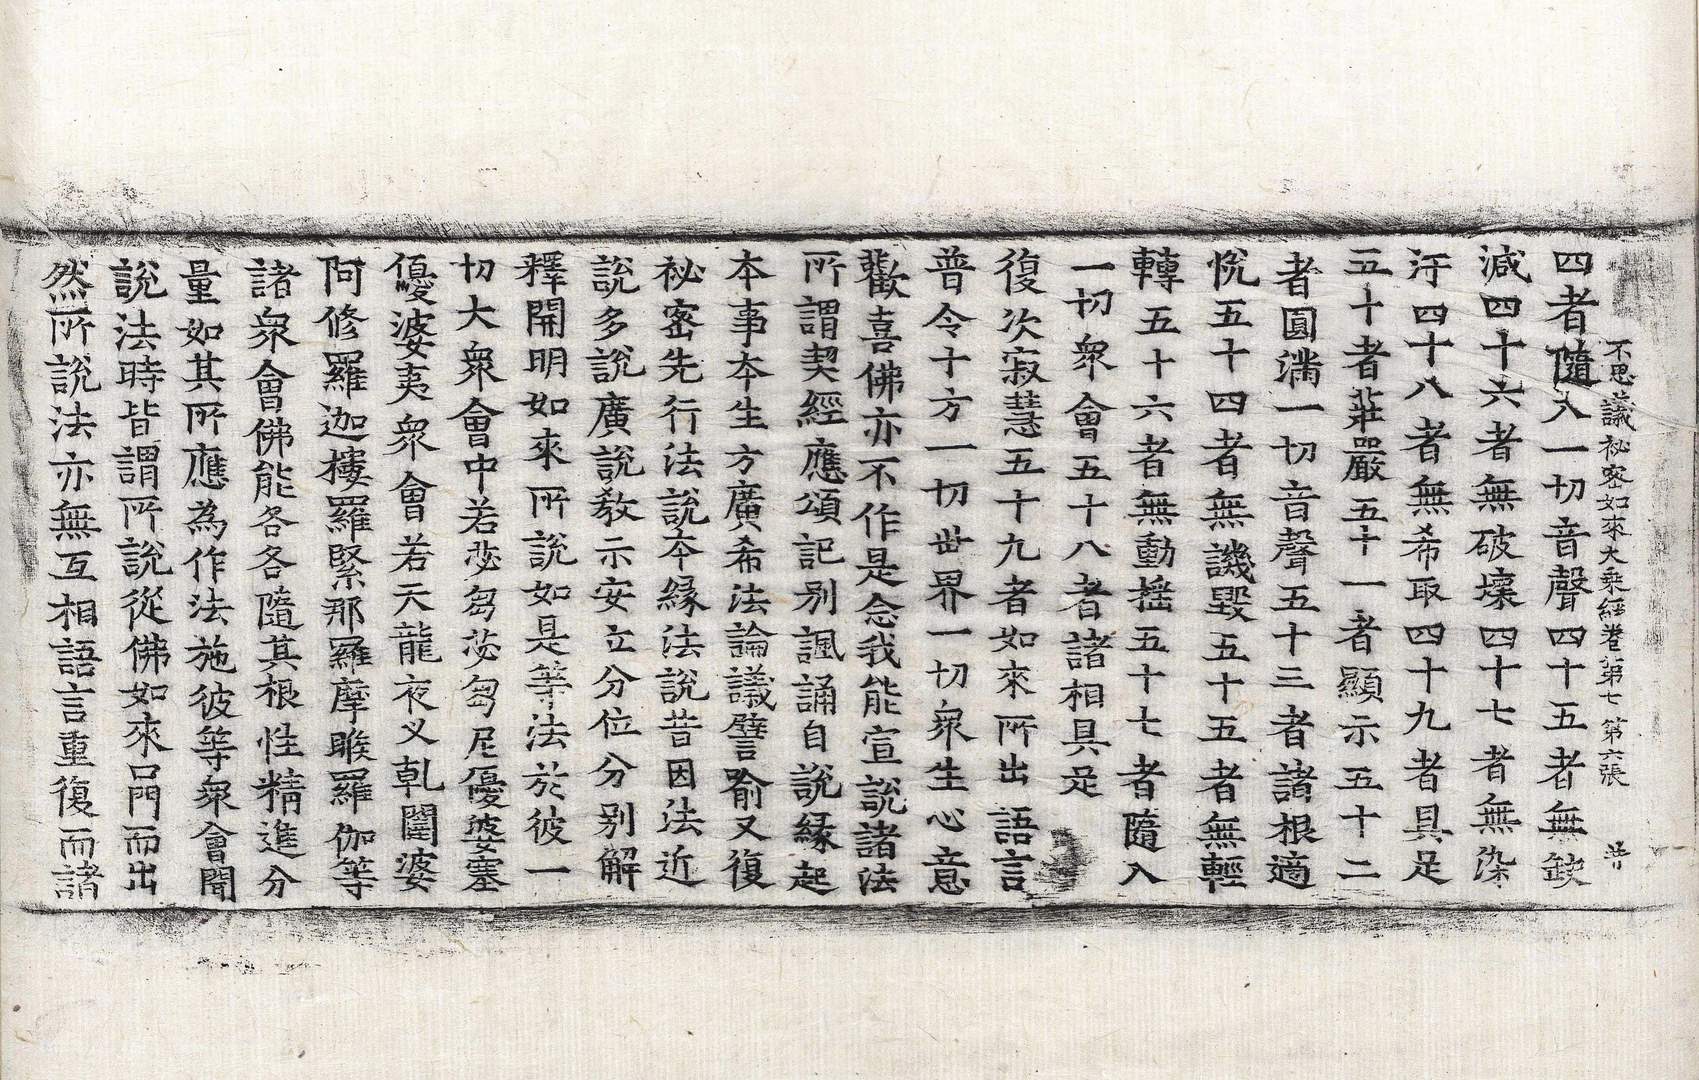 不思議祕密如來大乘經卷第七 第六張
四者隨入一切音聲四十五者無缺
減四十六者無破壞四十七者無染
汙四十八者無希取四十九者具足
五十者莊嚴五十一者顯示五十二
者圓滿一切音聲五十三者諸根適
悅五十四者無譏毀五十五者無輕
轉五十六者無動搖五十七者隨入
一切衆會五十八者諸相具足
復次寂慧五十九者如來所出語言
普令十方一切世界一切衆生心意
歡喜佛亦不作是念我能宣說諸法
所謂契經應頌記别諷誦自說緣起
本事本生方廣希法論議譬喻又復
祕密先行法說本緣法說昔因法近
說多說廣說教示安立分位分别解
釋開明如來所說如是等法於彼一
切大衆會中若苾芻苾芻尼優婆塞
優婆夷衆會若天龍夜叉乹闥婆
阿修羅迦樓羅緊那羅摩睺羅伽等
諸衆會佛能各各隨其根性精進分
量如其所應為作法施彼等衆會聞
說法時皆謂所說從佛如來口門而出
然所說法亦無互相語言重復而諸